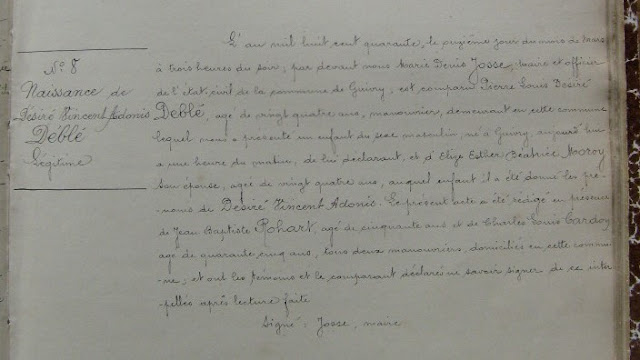 N° 8
Naissance de
Désiré Vincent Adonis
Déblé
Légitime
L'an mil huit cent quarante, le onzième jour du mois de mars
à trois heures du soir; par devant nous Marie Denis Josse, maire et officier
de l'état civil de la commune de Guivry; est comparu Pierre Louis Désiré
Déblé, agé de vingt quatre ans, manouvrier, demeurant en cette commune
lequel nous a présenté un enfant du sexe masculin né à Guivry, aujourd'hui
à une heure du matin, de lui déclarant, et d'Elize Esther Béatrice Moroy
son épouse, agée de vingt quatre ans, auquel enfant il a été donné les pré-
noms de Désiré Vincent Adonis. Le présent acte a été rédigé en présence
de Jean Baptiste Rohart, agé de cinquante ans et de Charles Louis Cardoy
agé de quarante cinq ans, tous deux manouvriers, domiciliés en cette commu-
-ne; et ont les témoins et le comparant déclaré ne savoir signer de ce inter-
-pellés après lecture faite
Signé: Josse, maire